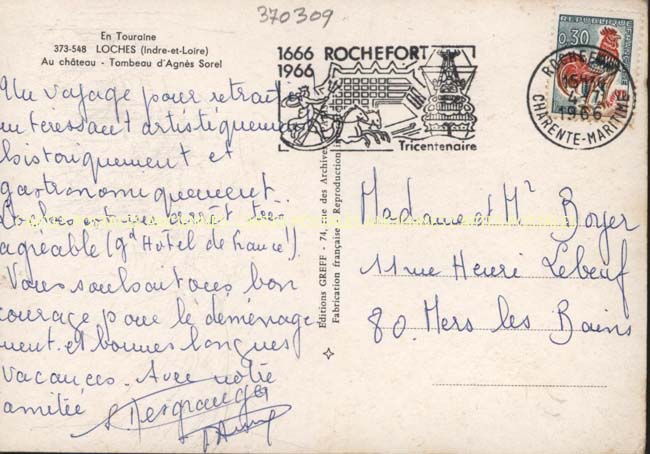 370309
En Touraine
373-548 LOCHES (Indre-et-Loire)
Au château - Tombeau d'Agnès Sorel
1666 ROCHEFORT
1966
Tricentenaire
REPUBLIQUE FRANÇAISE
0,30
ROCHEFORT
16H
4-7
1966
CHARENTE-MARITIME
Un voyage pour retraité
intéressant artistiquement
historiquement et
gastronomiquement..
Loches est une arrêt très
agréable (gd Hôtel de France!)
Vous souhaitons bon
courage pour le déménage
ment et bonnes longues
vacances. Avec notre
amitié
Desgranges
Editions GREFF - 74, rue des Archives
Fabrication française - Reproduction
Madame et Mr Boyer
11 rue Henri Lebeuf
80. Mers les Bains